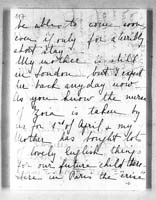 be able to come soon
even if only for a terribly
short stay.
My mother is still
in London, but I expect
her back any day now.
As you know the nurse
of Zora is taken by
us for 1st April & my
mother has bought lots
lovely English things
for our future child there.
here in Paris the "crise"